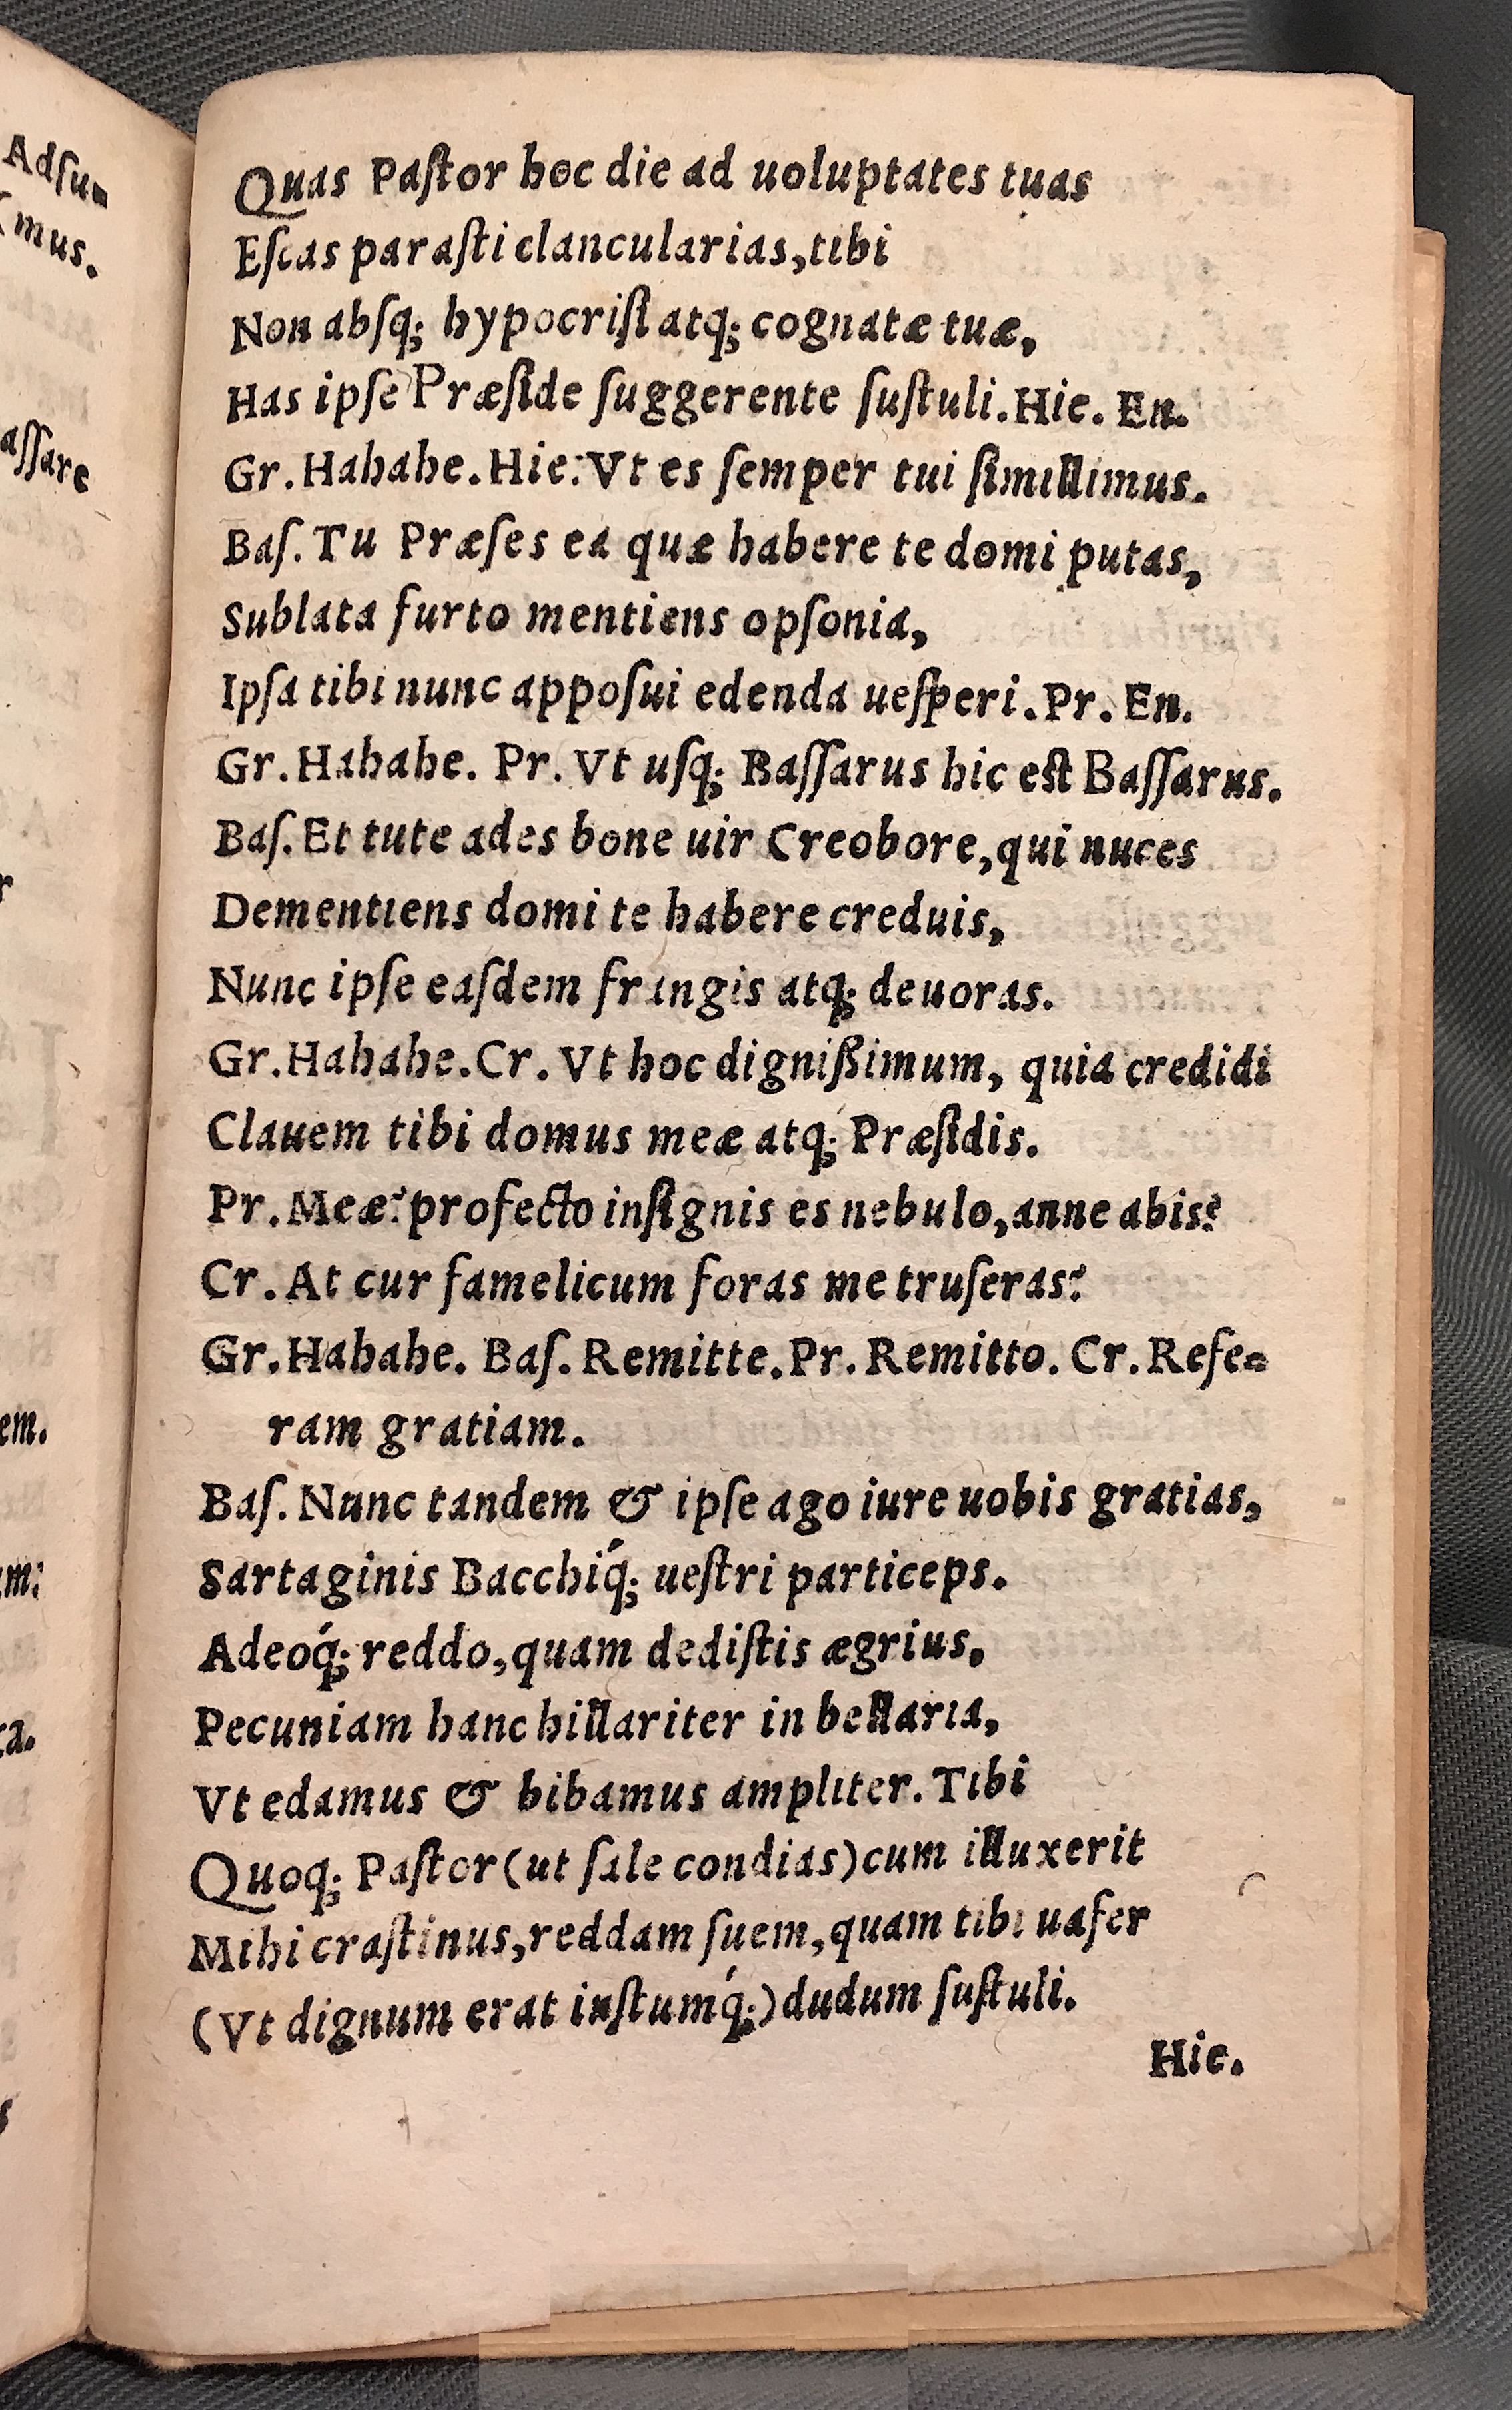 Adſu⸗
(mus.
aſſare
r
em.
m:
ta.
s
Quas Paſtor hoc die ad uoluptates tuas
Eſcas paraſti clancularias, tibi
Non abſq; hypocriſi atq; cognatæ tuæ,
Has ipſe Præſide ſuggerente ſuſtuli. Hie. En.
Gr. Hahahe. Hie. Vt es ſemper tui ſimillimus.
Baſ. Tu Præſes ea quæ habere te domi putas,
Sublata furto mentiens opſonia,
Ipſa tibi nunc appoſui edenda ueſperi. Pr. En.
Gr. Hahahe. Pr. Vt uſq; Baſſarus hic eſt Baſſarus.
Baſ. Et tute ades bone uir Creobore, qui nuces
Dementiens domi te habere creduis,
Nunc ipſe eaſdem frangis atq; deuoras.
Gr. Hahahe. Cr. Vt hoc digniſsimum, quia credidi
Clauem tibi domus meæ atq; Præſidis.
Pr. Meæ? profecto inſignis es nebulo, anne abis?
Cr. At cur famelicum foras me truſeras?
Gr. Hahahe. Baſ. Remitte. Pr. Remitto. Cr. Refe⸗
ram gratiam.
Baſ. Nunc tandem & ipſe ago iure uobis gratias,
Sartaginis Bacchiq́; ueſtri particeps.
Adeoq́; reddo, quam dediſtis ægrius,
Pecuniam hanc hillariter in bellaria,
Vt edamus & bibamus ampliter. Tibi
Quoq; Paſtor (ut ſale condias) cum illuxerit
Mihi craſtinus, reddam ſuem, quam tibi uafer
(Vt dignum erat iuſtumq́;) dudum ſuſtuli.
Hie.